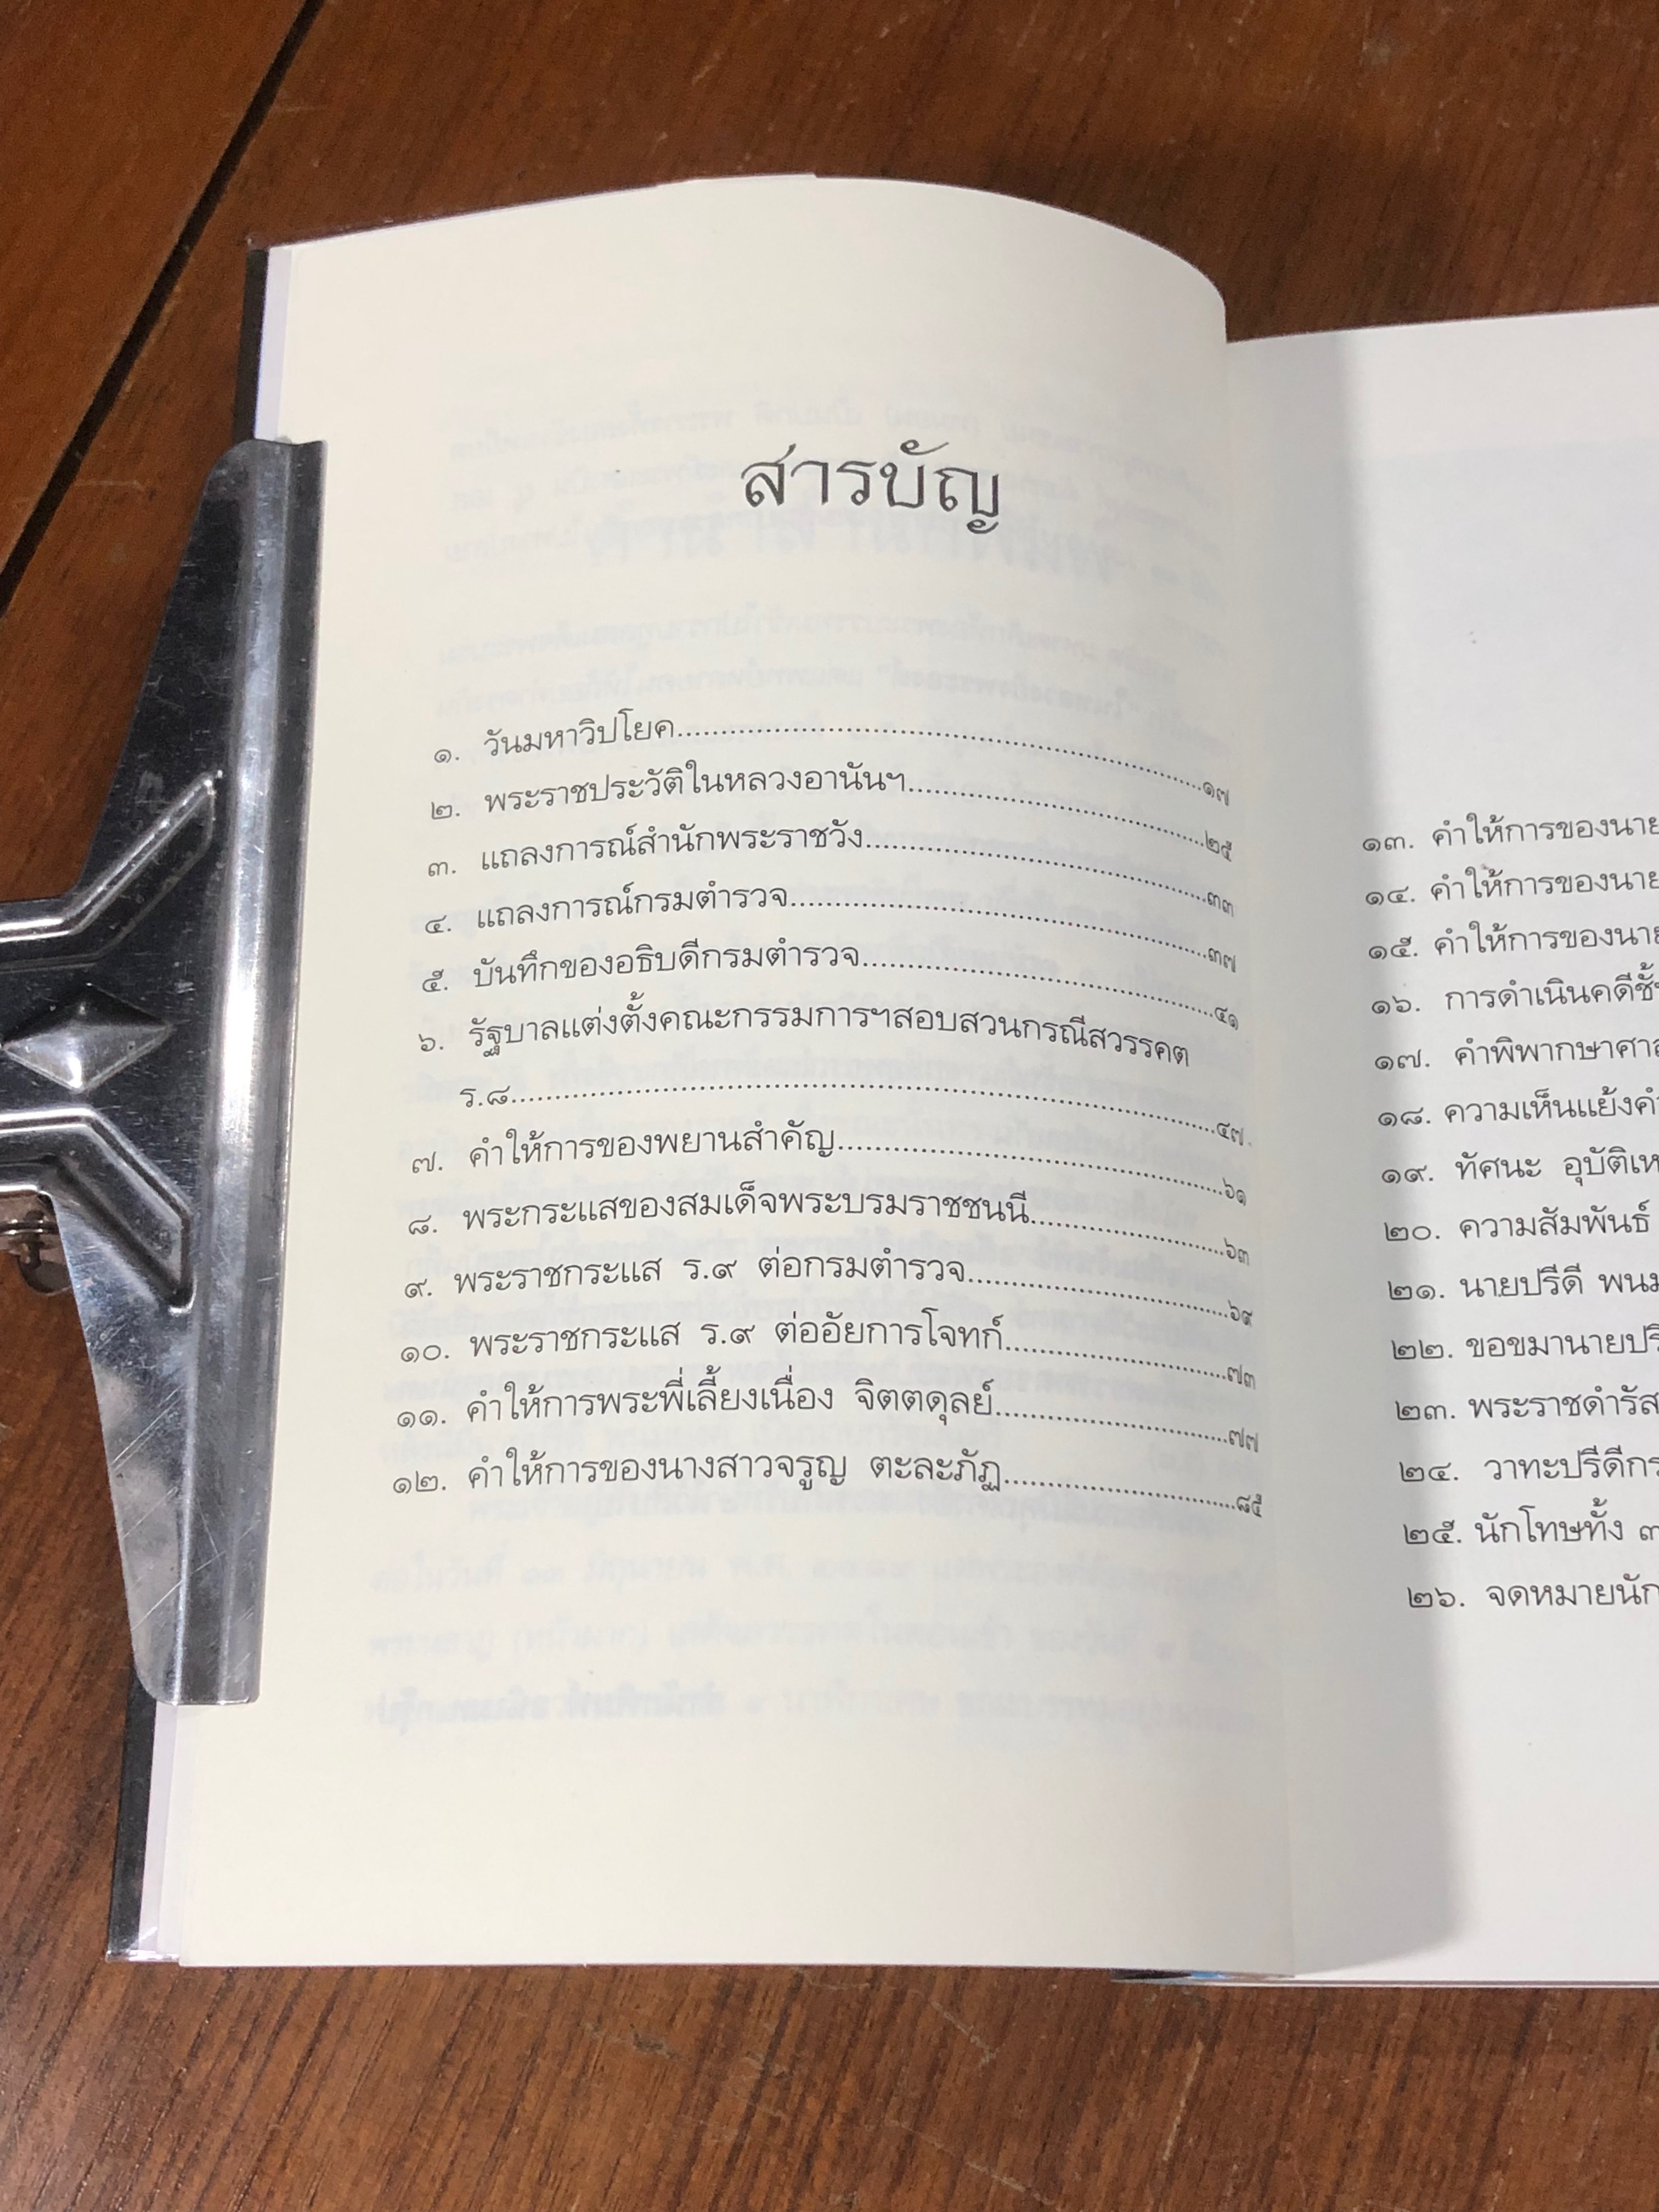 สารบัญ
๑. วันมหาวิปโยค....................................................๑๗
๒. พระราชประวัติในหลวงอานันฯ..............................๒๕
๓. แถลงการณ์สำนักพระราชวัง..................................๓๓
๔. แถลงการณ์กรมตำรวจ.........................................๓๗
๕. บันทึกของอธิบดีกรมตำรวจ...................................๔๑
๖. รัฐบาลแต่งตั้งคณะกรรมการฯสอบสวนกรณีสวรรคต
ร.๘..................................................................๔๗
๗. คำให้การของพยานสำคัญ.....................................๖๑
๘. พระกระแสของสมเด็จพระบรมราชชนนี....................๖๓
๙. พระราชกระแส ร.๙ ต่อกรมตำรวจ..........................๖๙
๑๐. พระราชกระแส ร.๙ ต่ออัยการโจทก์......................๗๓
๑๑. คำให้การพระพี่เลี้ยงเนื่อง จิตตดุลย์........................๗๗
๑๒. คำให้การของนางสาวจรูญ ตะละภัฏ........................๘๕
๑๓. คำให้การของนาย
๑๔. คำให้การของนาย
๑๕. คำให้การของนาย
๑๖. การดำเนินคดีชั้น
๑๗. คำพิพากษาศาล
๑๘. ความเห็นแย้งคำ
๑๙. ทัศนะ อุบัติเห
๒๐. ความสัมพันธ์
๒๑. นายปรีดี พนม
๒๒. ขอขมานายปรี
๒๓. พระราชดำรัส
๒๔. วาทะปรีดีกร
๒๕. นักโทษทั้ง ๓
๒๖. จดหมายนัก